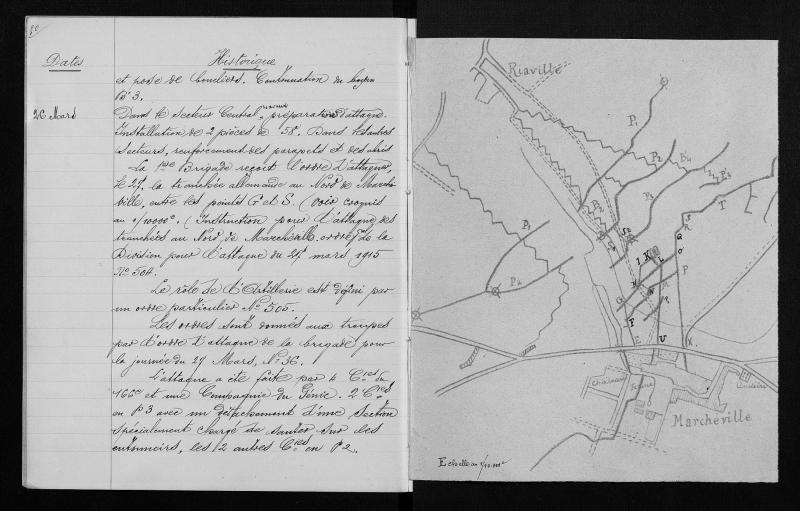 80
Dates
Historique
et pose de boucliers. Continuation du boyau
P. 3.
26 Mars
Dans le secteur Central, travaux préparation d'attaque.
Installation de 2 pièces de 58. Dans les autres
secteurs, renforcement des parapets et des abris
La 1ère Brigade reçoit l'ordre d'attaquer,
le 27, la tranchée allemande au Nord de Marche-
ville, entre les points G et S. (Voir croquis
au 1/10000e. (Instruction pour l'attaque des
tranchées au Nord de Marchéville. ordre de la
Division pour l'attaque du 27 mars 1915
No 504.
Le rôle de l'Artillerie est défini par
un ordre particulier No 505.
Les ordres sont donnés aux troupes
par l'ordre d'attaque de la brigade pour
la journée du 27 Mars, No 36.
L'attaque a été faite par 4 Cies du
166e et une Compagnie du Génie. 2 Cies
en P 3 avec un détachement d'une section
spécialement chargé de sauter sur les
entonnoirs, les 2 autres Cies en P 2.
Riaville
P1
P2
P3
P4
P1
P2
T
S
R
Q
O
P
I
K
L
G
H
N
M
F
E
U
X
Château
Eglise
Cimetière
Marcheville
Echelle au 1/10.000e